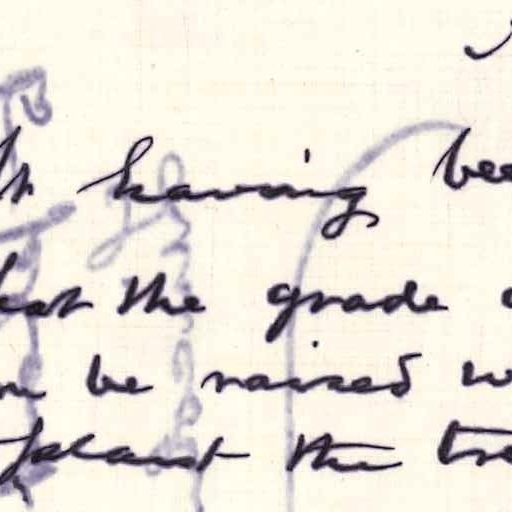 having bee
the grade
be raised
plant the tre